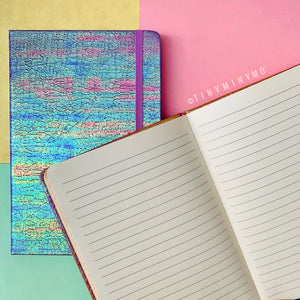 ©TINYMINYMO